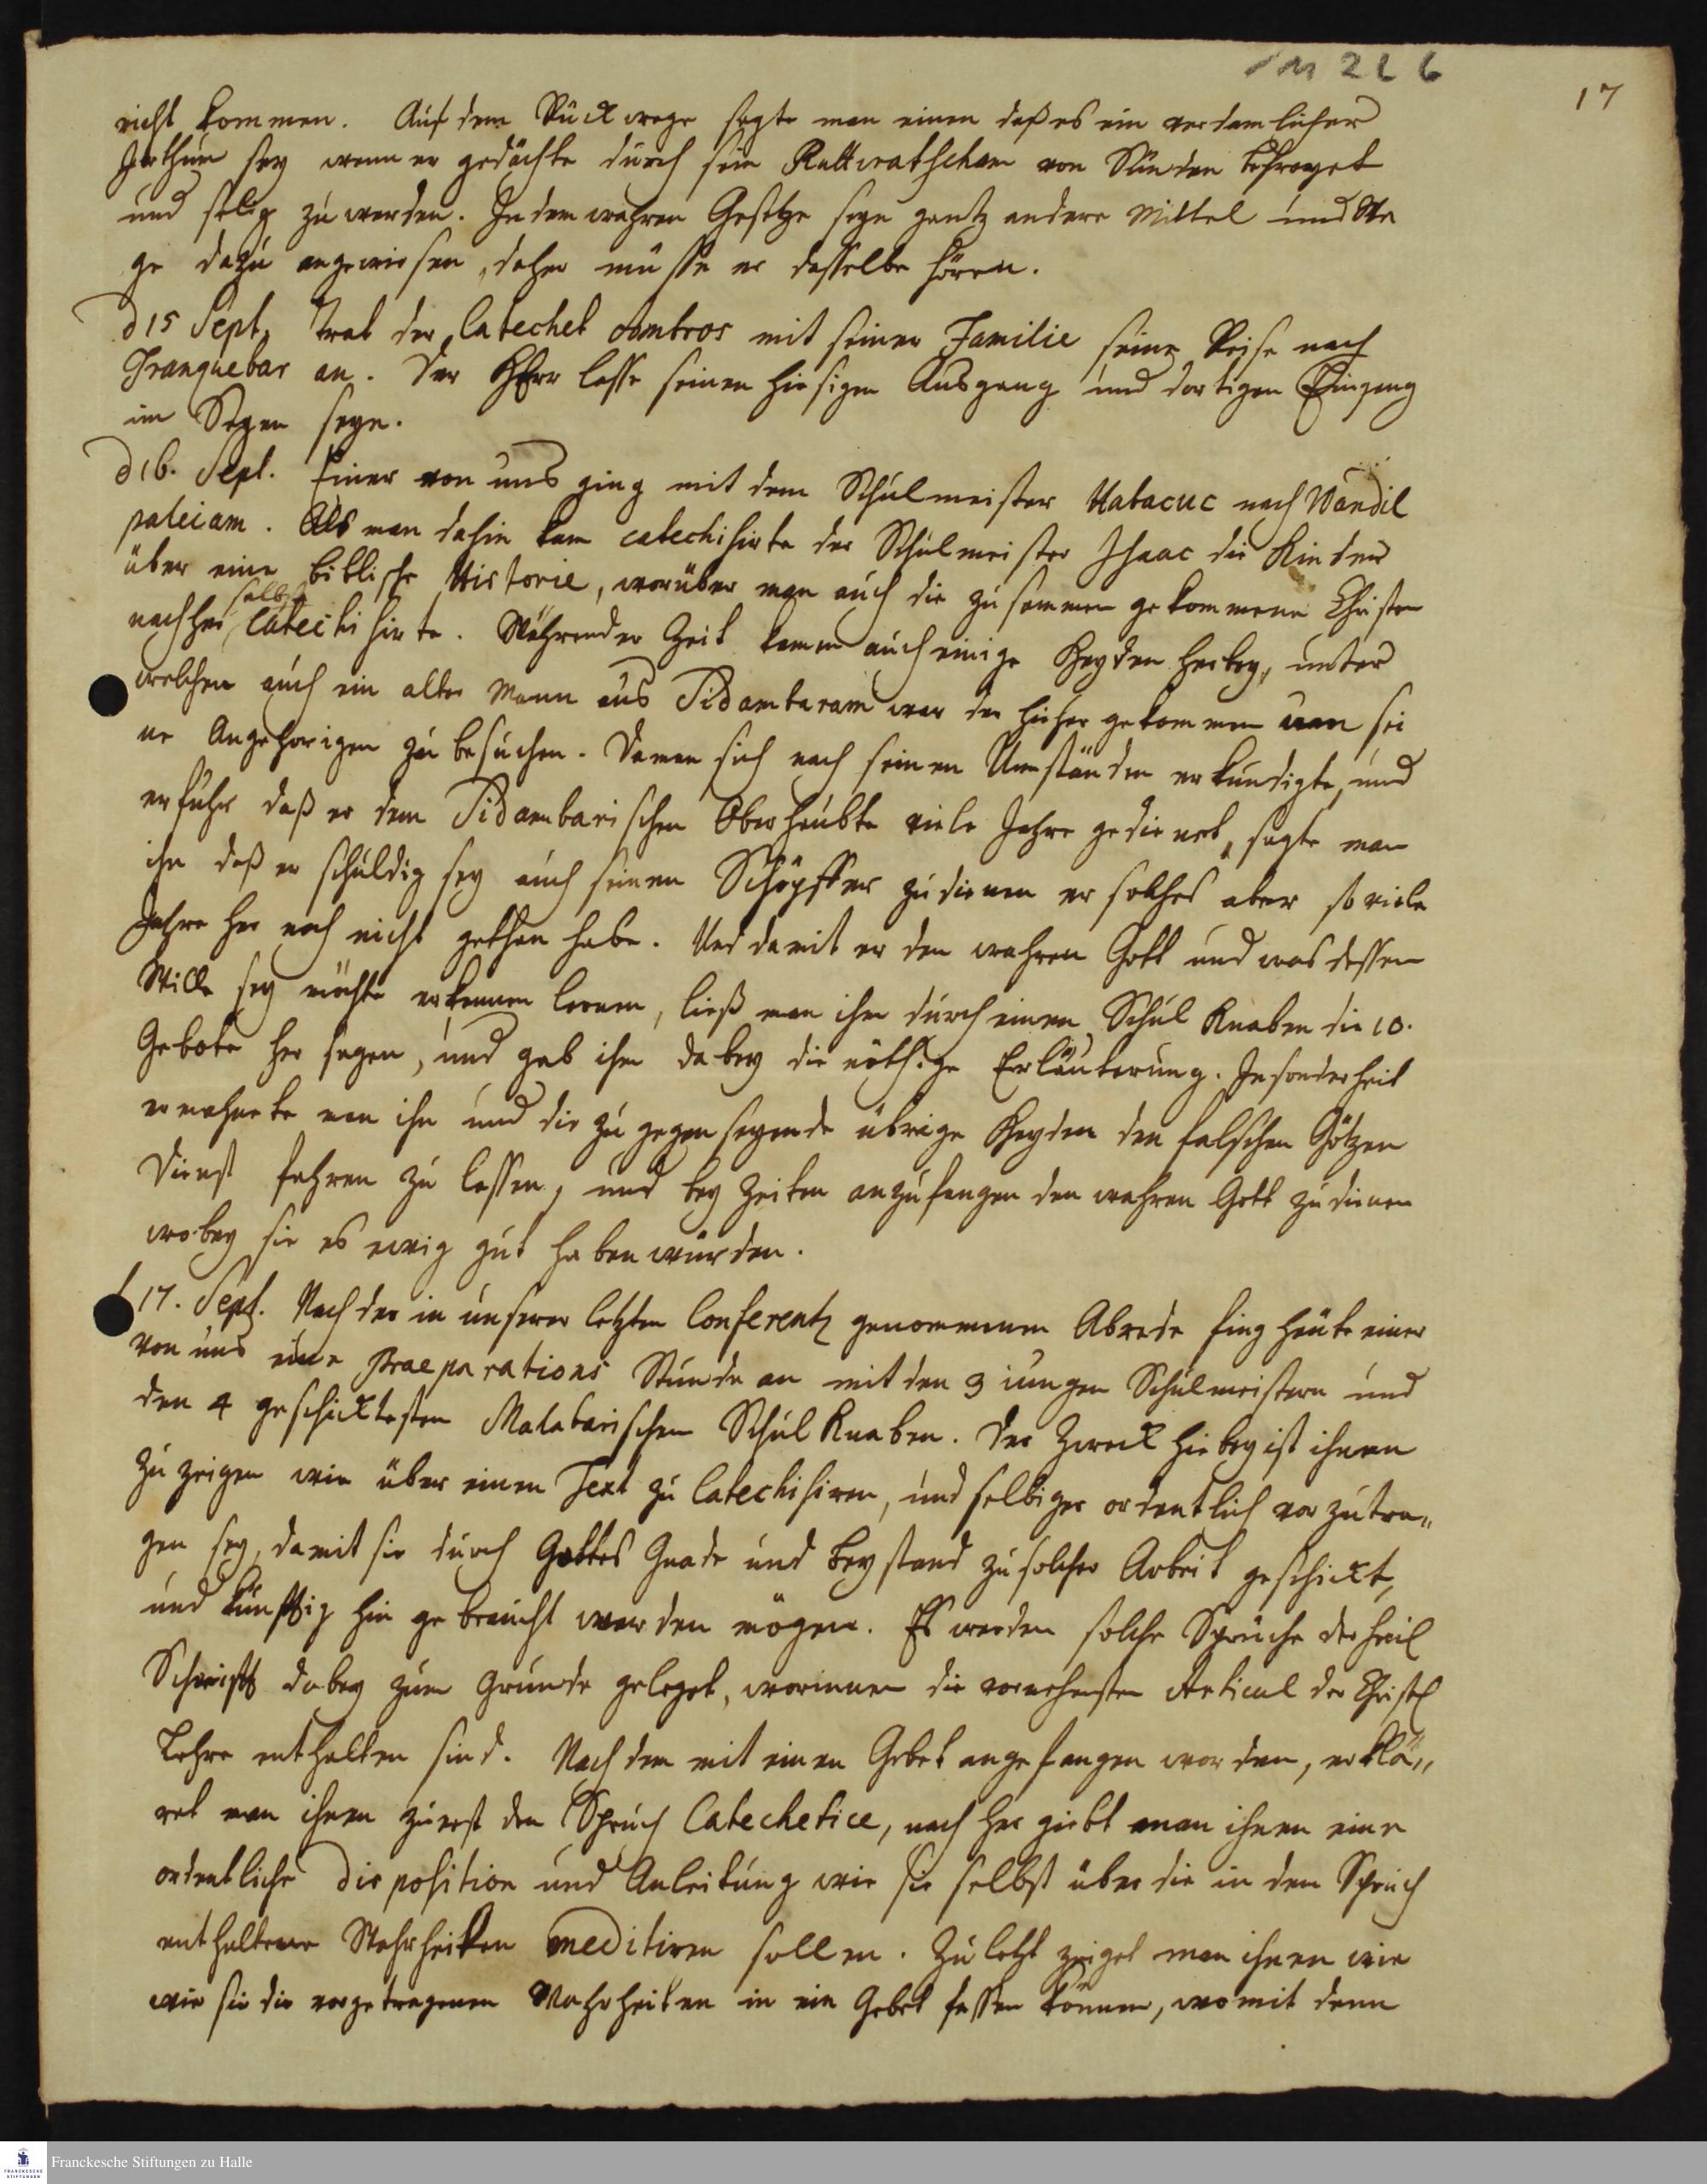 1 M 2 2 6
17
nicht kommen. Auf dem Rückwege sagte man einem daß es ein verdamlicher
Irrthum sey wenn er gedächte durch sein Ruttiratscham von Sünden befreyet
und selig zu werden. In dem wahren Gesetze seyn gantz andere Mittel und We
ge dazu angewiesen, daher müsse er dasselbe hören.
d 15 Sept. Trat der Catechet Ambros mit seiner Familie seine Reise nach
Tranquebar an. Der HErr lasse seinen hiesigen Ausgang und dortigen Eingang
im Segen seyn.
d 16. Sept. Einer von uns ging mit dem Schulmeister Habacuc nach Wandil
paleiam. Als man dahin kam catechisirte der Schulmeister Isaac die Kinder
über eine biblische Historie, worüber man auch die zusammen gekommene Christen
selbst
nachher catechisirte. Während er Zeit kamen auch einige Heyden herbey, unter
welchen auch ein alter Mann aus Tidambaram war der hieher gekommen um sei
ne Angehörigen zu besuchen. Da man sich nach seinen Umständen erkundigte, und
erfuhr daß er dem Tidambarischen Oberhaubte viele Jahre gedienet, sagte man
ihm daß er schuldig sey auch seinem Schöpffer zu dienen er solches aber so viele
Jahre her noch nicht gethan habe. Und damit er den wahren Gott und was dessen
Wille sey möchte erkennen lernen, ließ man ihm durch einen Schul Knaben die 10.
Gebote her sagen, und gab ihm dabey die nöthige Erläuterung. Insonderheit
ermahnete man ihn und die zu gegen seyende übrige Heyden den falschen Götzen
Dienst fahren zu lassen, und bey Zeiten anzufangen dem wahren Gott zu dienen
wobey sie es ewig gut haben würden.
d 17. Sept. Nach der in unserer letzten Conferentz genommenen Abrede fing heute einer
von uns eine Praeparations Stunde an mit den 3 jungen Schulmeistern und
den 4 geschicktesten Malabarischen Schul Knaben. Der Zweck hiebey ist ihnen
zu zeigen wie über einen Text zu Catechisiren, und selbiger ordentlich vorzutra„
gen sey, damit sie durch Gottes Gnade und Beystand zu solcher Arbeit geschickt,
und künfftig hin gebraucht werden mögen. Es werden solche Sprüche der heil
Schrifft dabey zum Grunde geleget, worinnen die vornehmsten Articul der Christl
Lehre enthalten sind. Nach dem mit einem Gebet angefangen worden, erklä„
ret man ihnen zuerst den Spruch Catechetice, nach her giebt man ihnen eine
ordentliche disposition und Anleitung wie sie selbst über die in dem Spruch
enthaltene Wahrheiten meditiren sollen. Zu letzt zeiget man ihnen wie
wie sie die vorgetragenen Wahrheiten in ein Gebet fassen können, womit denn
Franckesche Stiftungen zu Halle